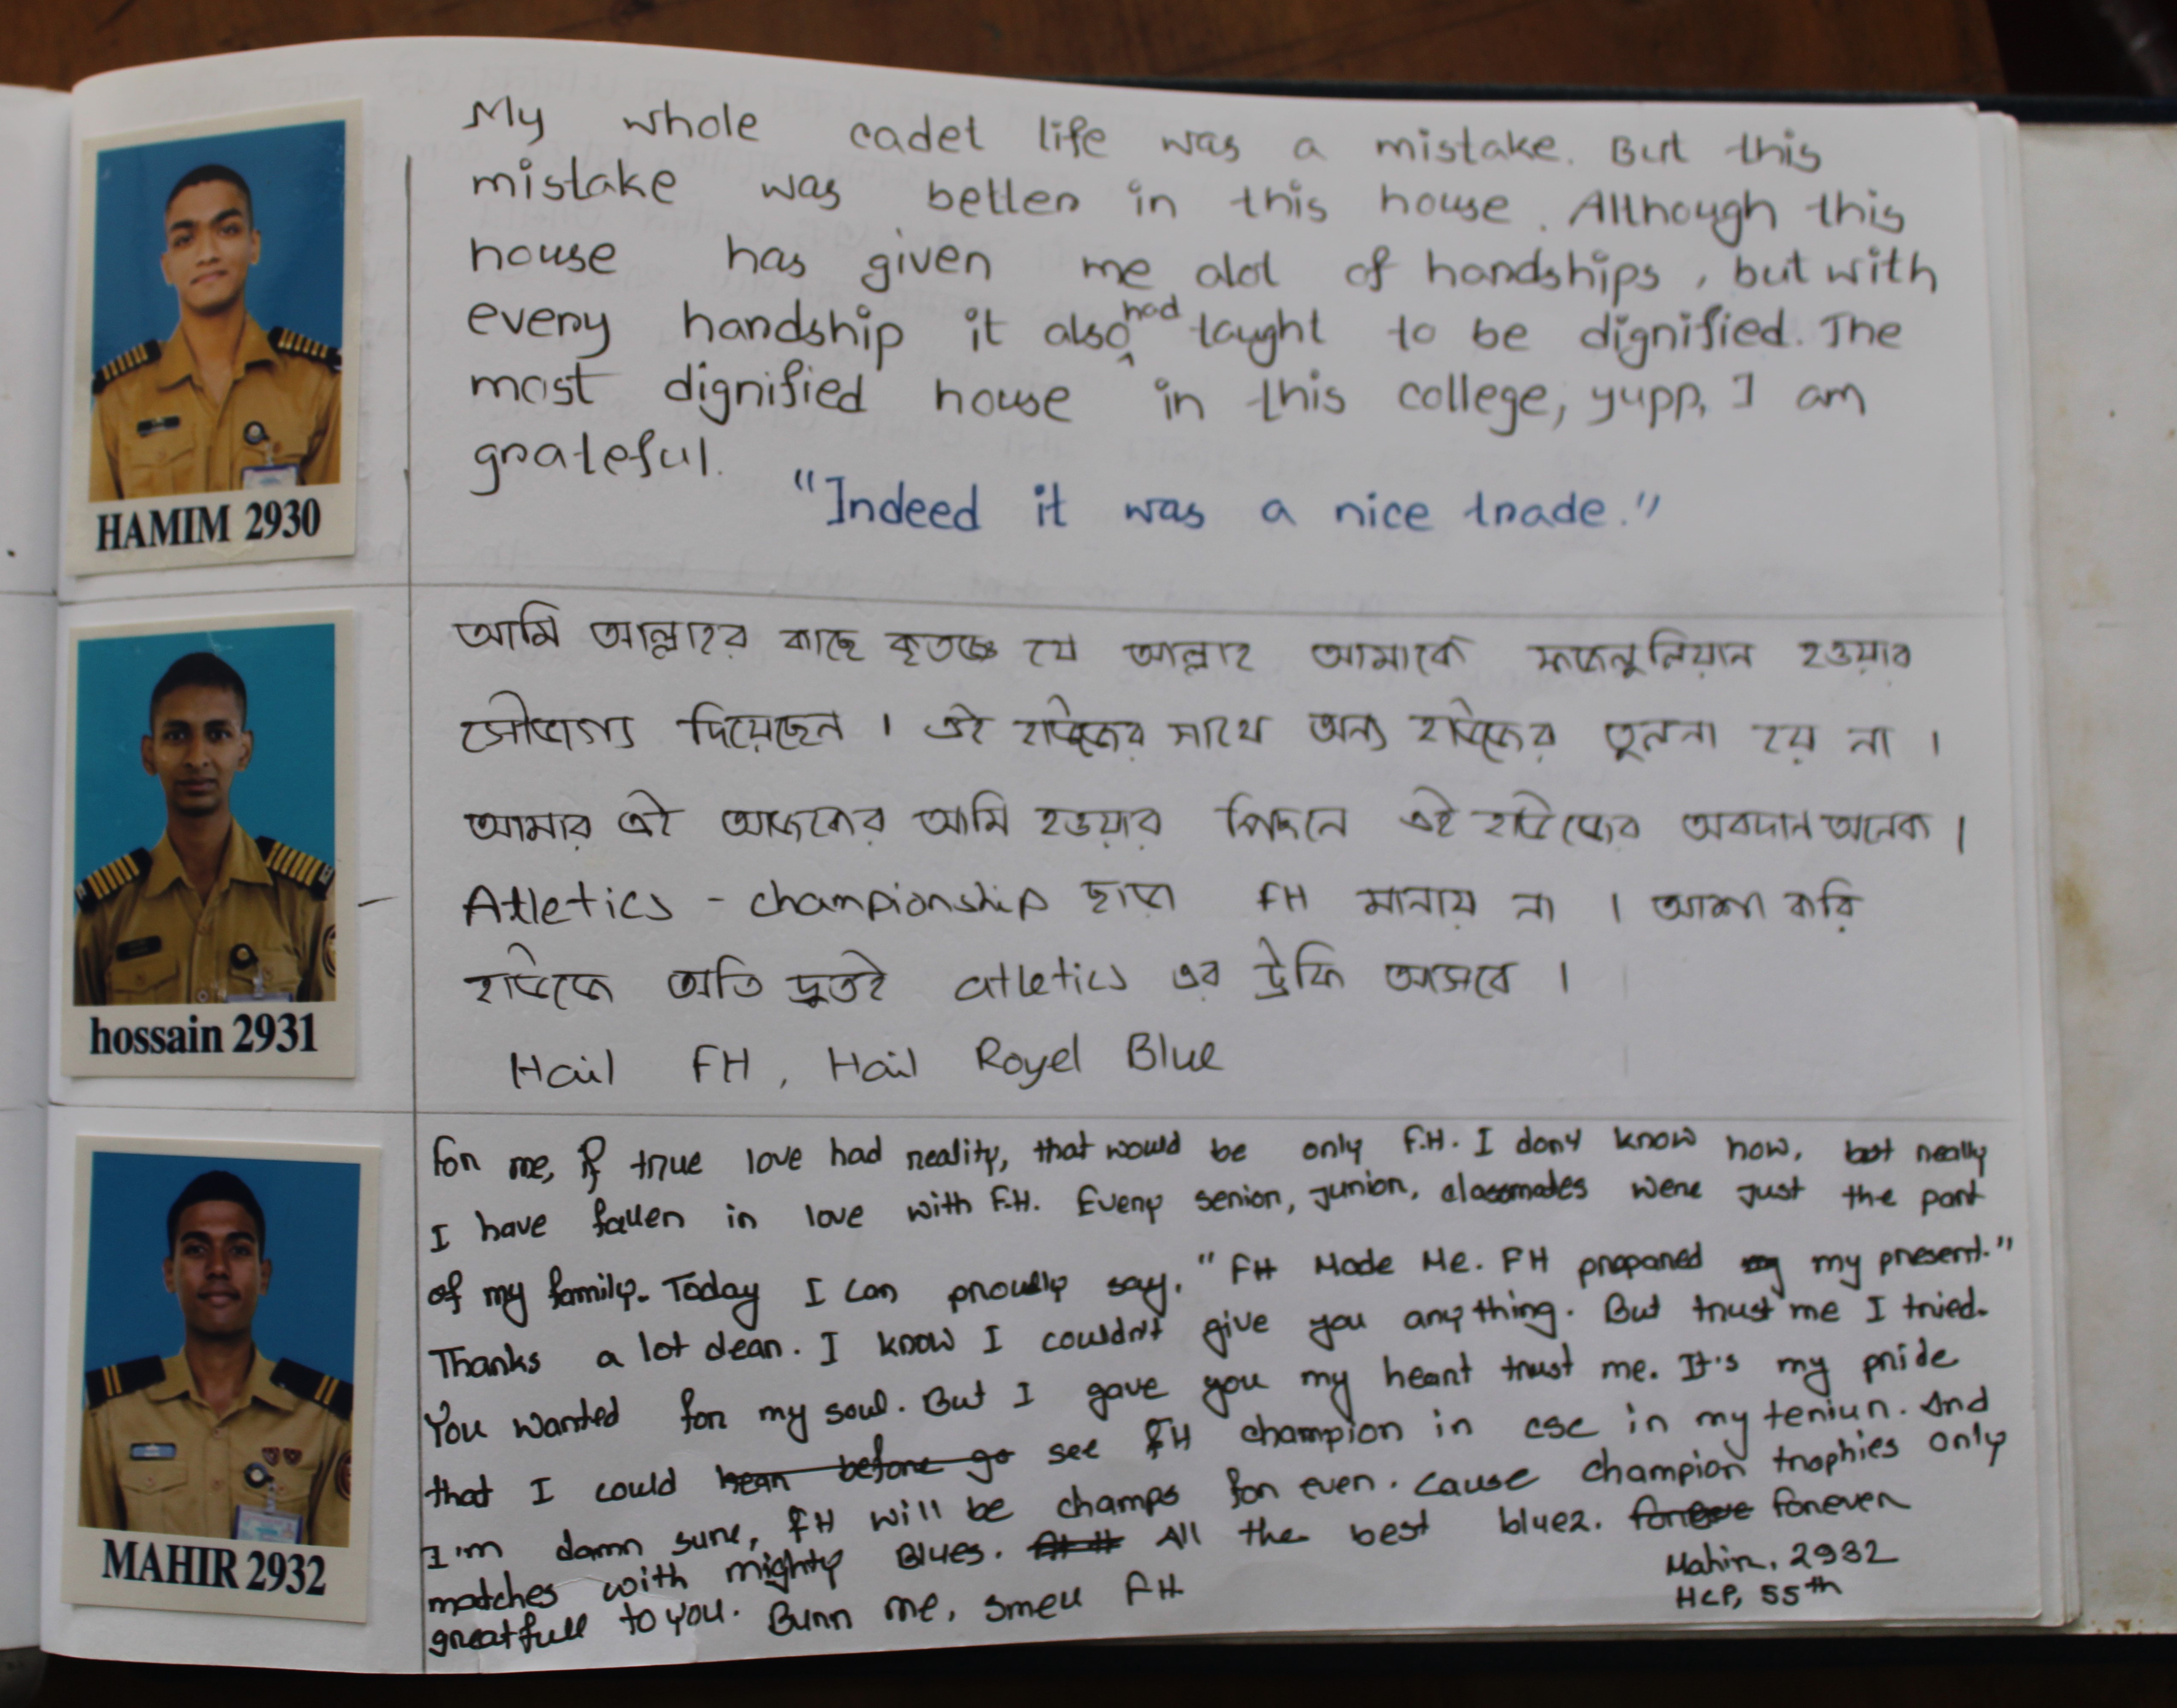 My whole cadet life was a mistake. But this
mistake was better in this house. Although this
house has given me alot of hardships, but with
every hardship it also had taught to be dignified. The
most dignified house in this college, yupp, I am
grateful.
"Indeed it was a nice trade."
HAMIM 2930
আমি আল্লাহর কাছে কৃতজ্ঞ যে আল্লাহ আমাকে ফজলুলিয়ান হওয়ার
সৌভাগ্য দিয়েছেন । এই হাউজের সাথে অন্য হাউজের তুলনা হয় না ।
আমার এই আজকের আমি হওয়ার পিছনে এই হাউজের অবদান অনেক ।
Atletics - championship ছাড়া FH মানায় না । আশা করি
হাউজে অতি দ্রুতই atletics এর ট্রফি আসবে ।
Hail FH, Hail Royel Blue
hossain 2931
For me, If true love had reality, that would be only F.H. I dont know how, but really
I have fallen in love with F.H. Every senior, junior, classmates were just the part
of my family. Today I can proudly say, "FH Made Me. FH prepared my present."
Thanks a lot dear. I know I couldn't give you any thing. But trust me I tried.
You wanted for my soul. But I gave you my heart trust me. It's my pride
that I could hear before go see FH champion in csc in my teniur. And
I'm damn sure, FH will be champs for ever. Cause champion trophies only
matches with mighty Blues. All the best bluez. forever
greatfull to you. Burn me, smell FH
Mahir, 2932
HCP, 55th
MAHIR 2932